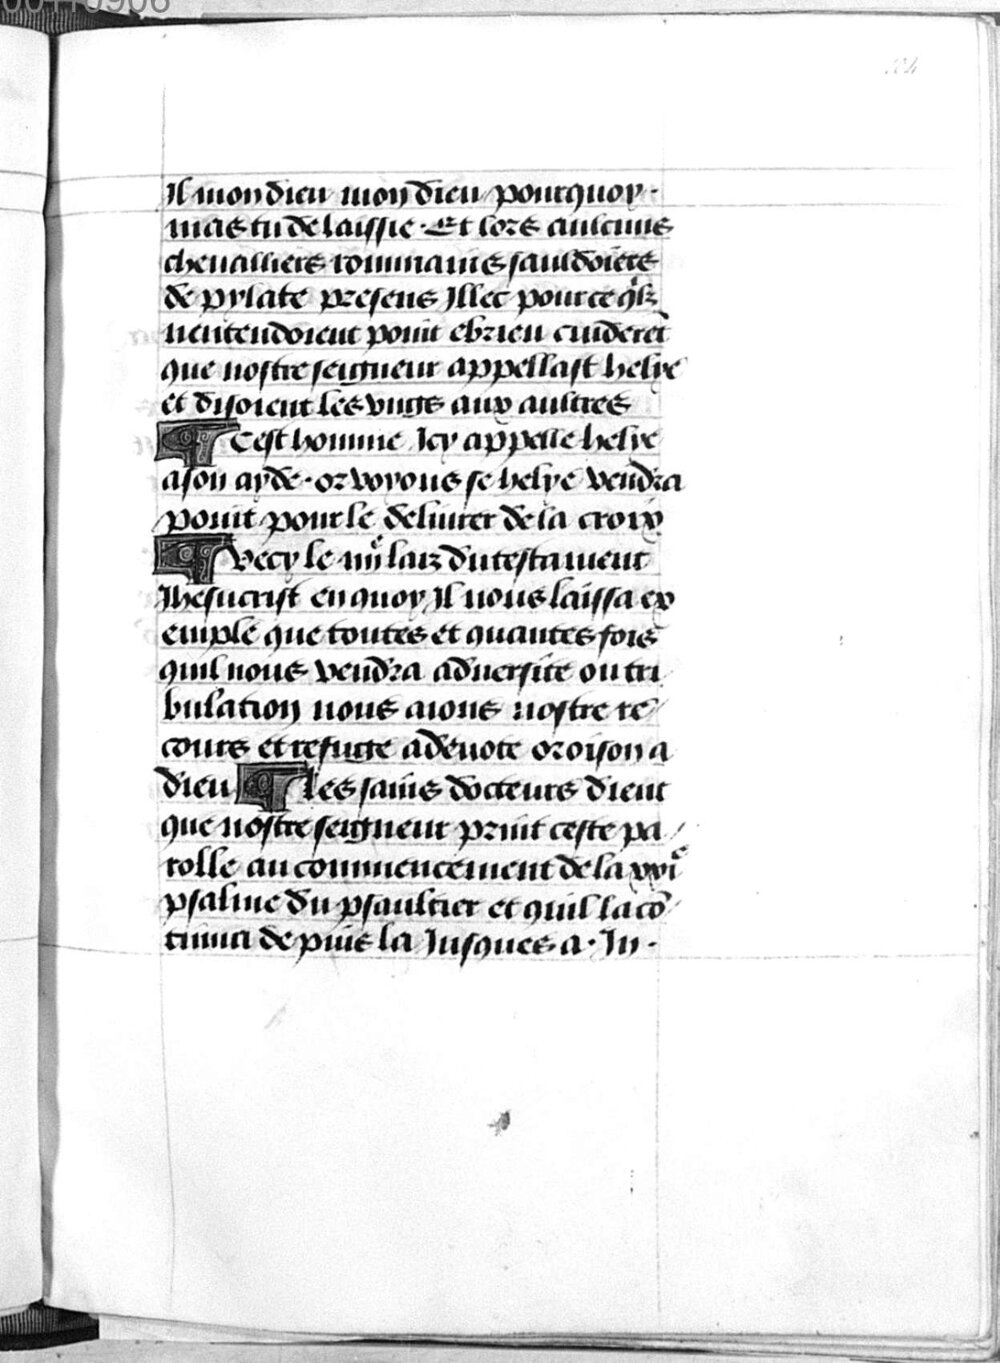 104
Il mon dieu mon dieu pourquoy ·
mas tu delaissie · Et lors aulcuns
chevalliers rommains sauldoiers
de pylate presens Illec pource qlz
nentendoient point ebrieu cuideret
que nostre seigneur appellast helye
et disoient les ungs aux aultres
¶ Cest homme Icy appelle helye
a son ayde · or voyons se helye vendra
point pour le delivrer de la croix
¶ Vecy le iiije laiz du testament
Jhesucrist en quoy Il nous laissa ex
emple que toutes et quantes fois
quil nous vendra adversite ou tri
bulation nous aions nostre re/
cours et refuge a devote oroison a
dieu ¶ Les sains docteurs dient
que nostre seigneur print ceste pa/
rolle au commencement de la xxie
psalme du psaultier et quil la cō/
tinua de puis la Jusques a · In ·